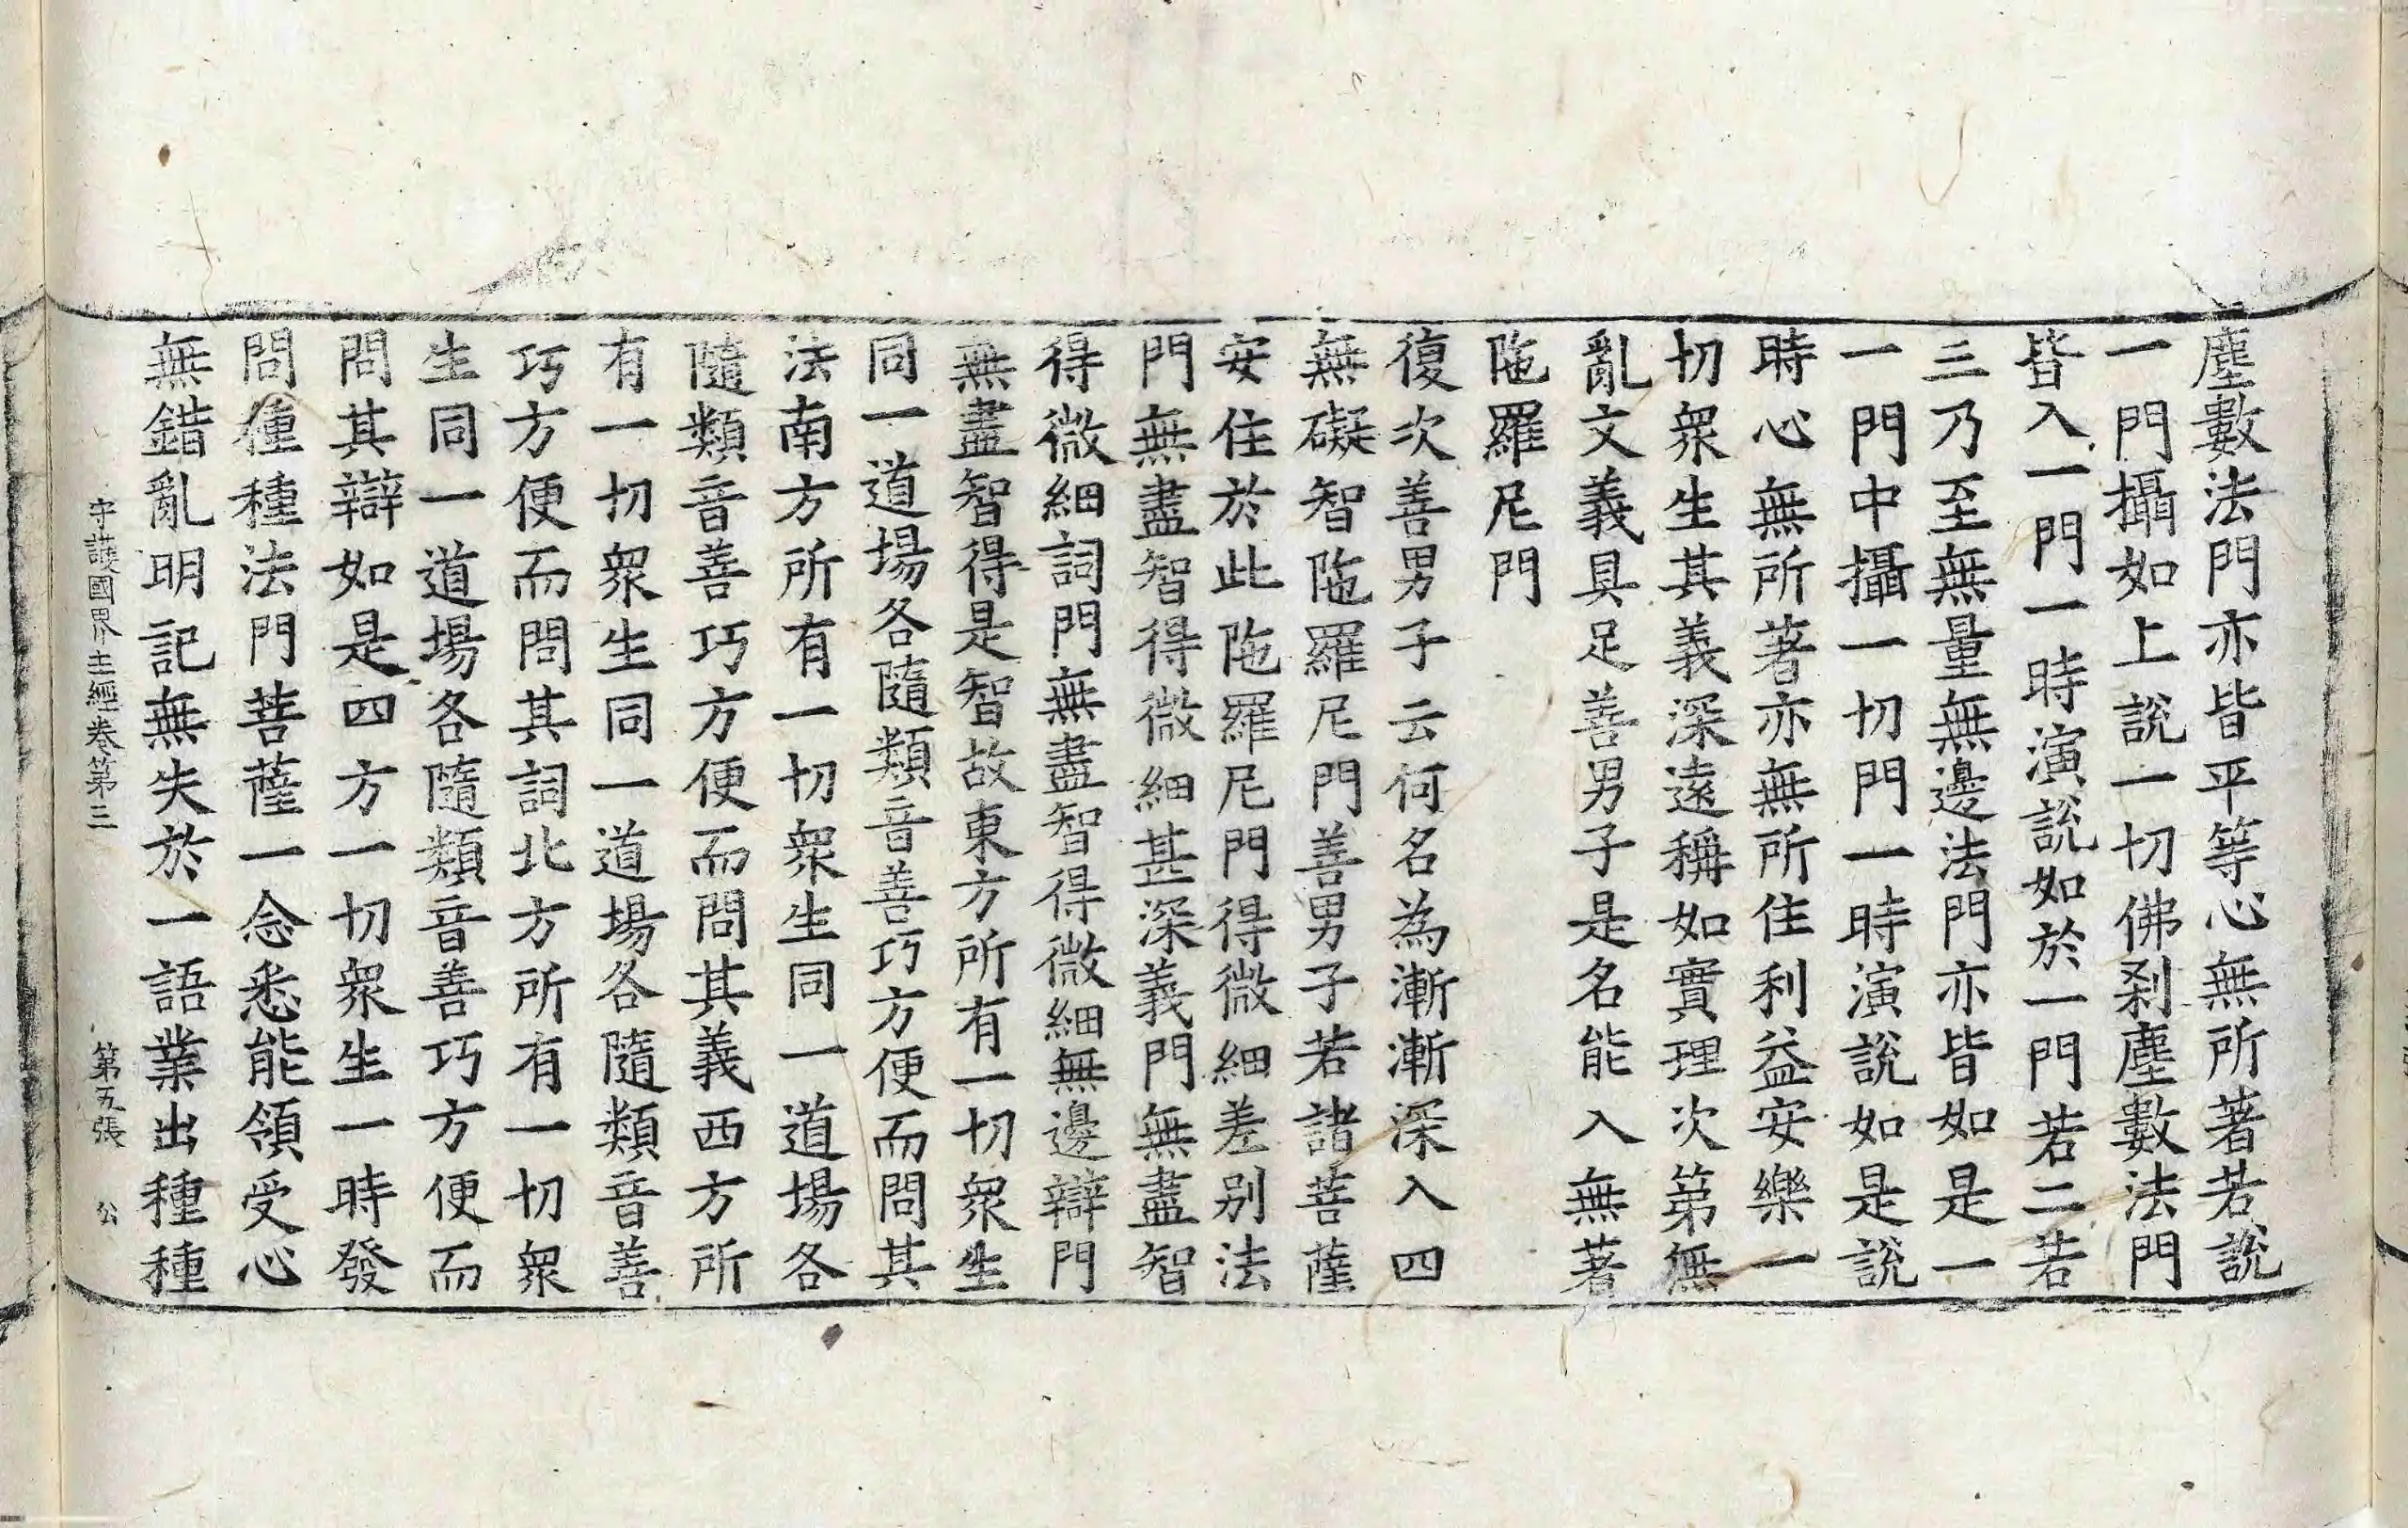 塵數法門亦皆平等心無所著若說
一門攝如上說一切佛剎塵數法門
皆入一門一時演說如於一門若二若
三乃至無量無邊法門亦皆如是一
一門中攝一切門一時演說如是說
時心無所著亦無所住利益安樂一
切眾生其義深遠稱如實理次第無
亂文義具足善男子是名能入無著
陁羅尼門
復次善男子云何名為漸漸深入四
無礙智陁羅尼門善男子若諸菩薩
安住於此陁羅尼門得微細差別法
門無盡智得微細甚深義門無盡智
得微細詞門無盡智得微細無邊辯門
無盡智得是智故東方所有一切眾生
同一道場各隨類音善巧方便而問其
法南方所有一切眾生同一道場各
隨類音善巧方便而問其義西方所
有一切眾生同一道場各隨類音善
巧方便而問其詞北方所有一切眾
生同一道場各隨類音善巧方便而
問其辯如是四方一切眾生一時發
問種種法門菩薩一念悉能領受心
無錯亂明記無失於一語業出種種
守護國界主經卷第三 第五張 公